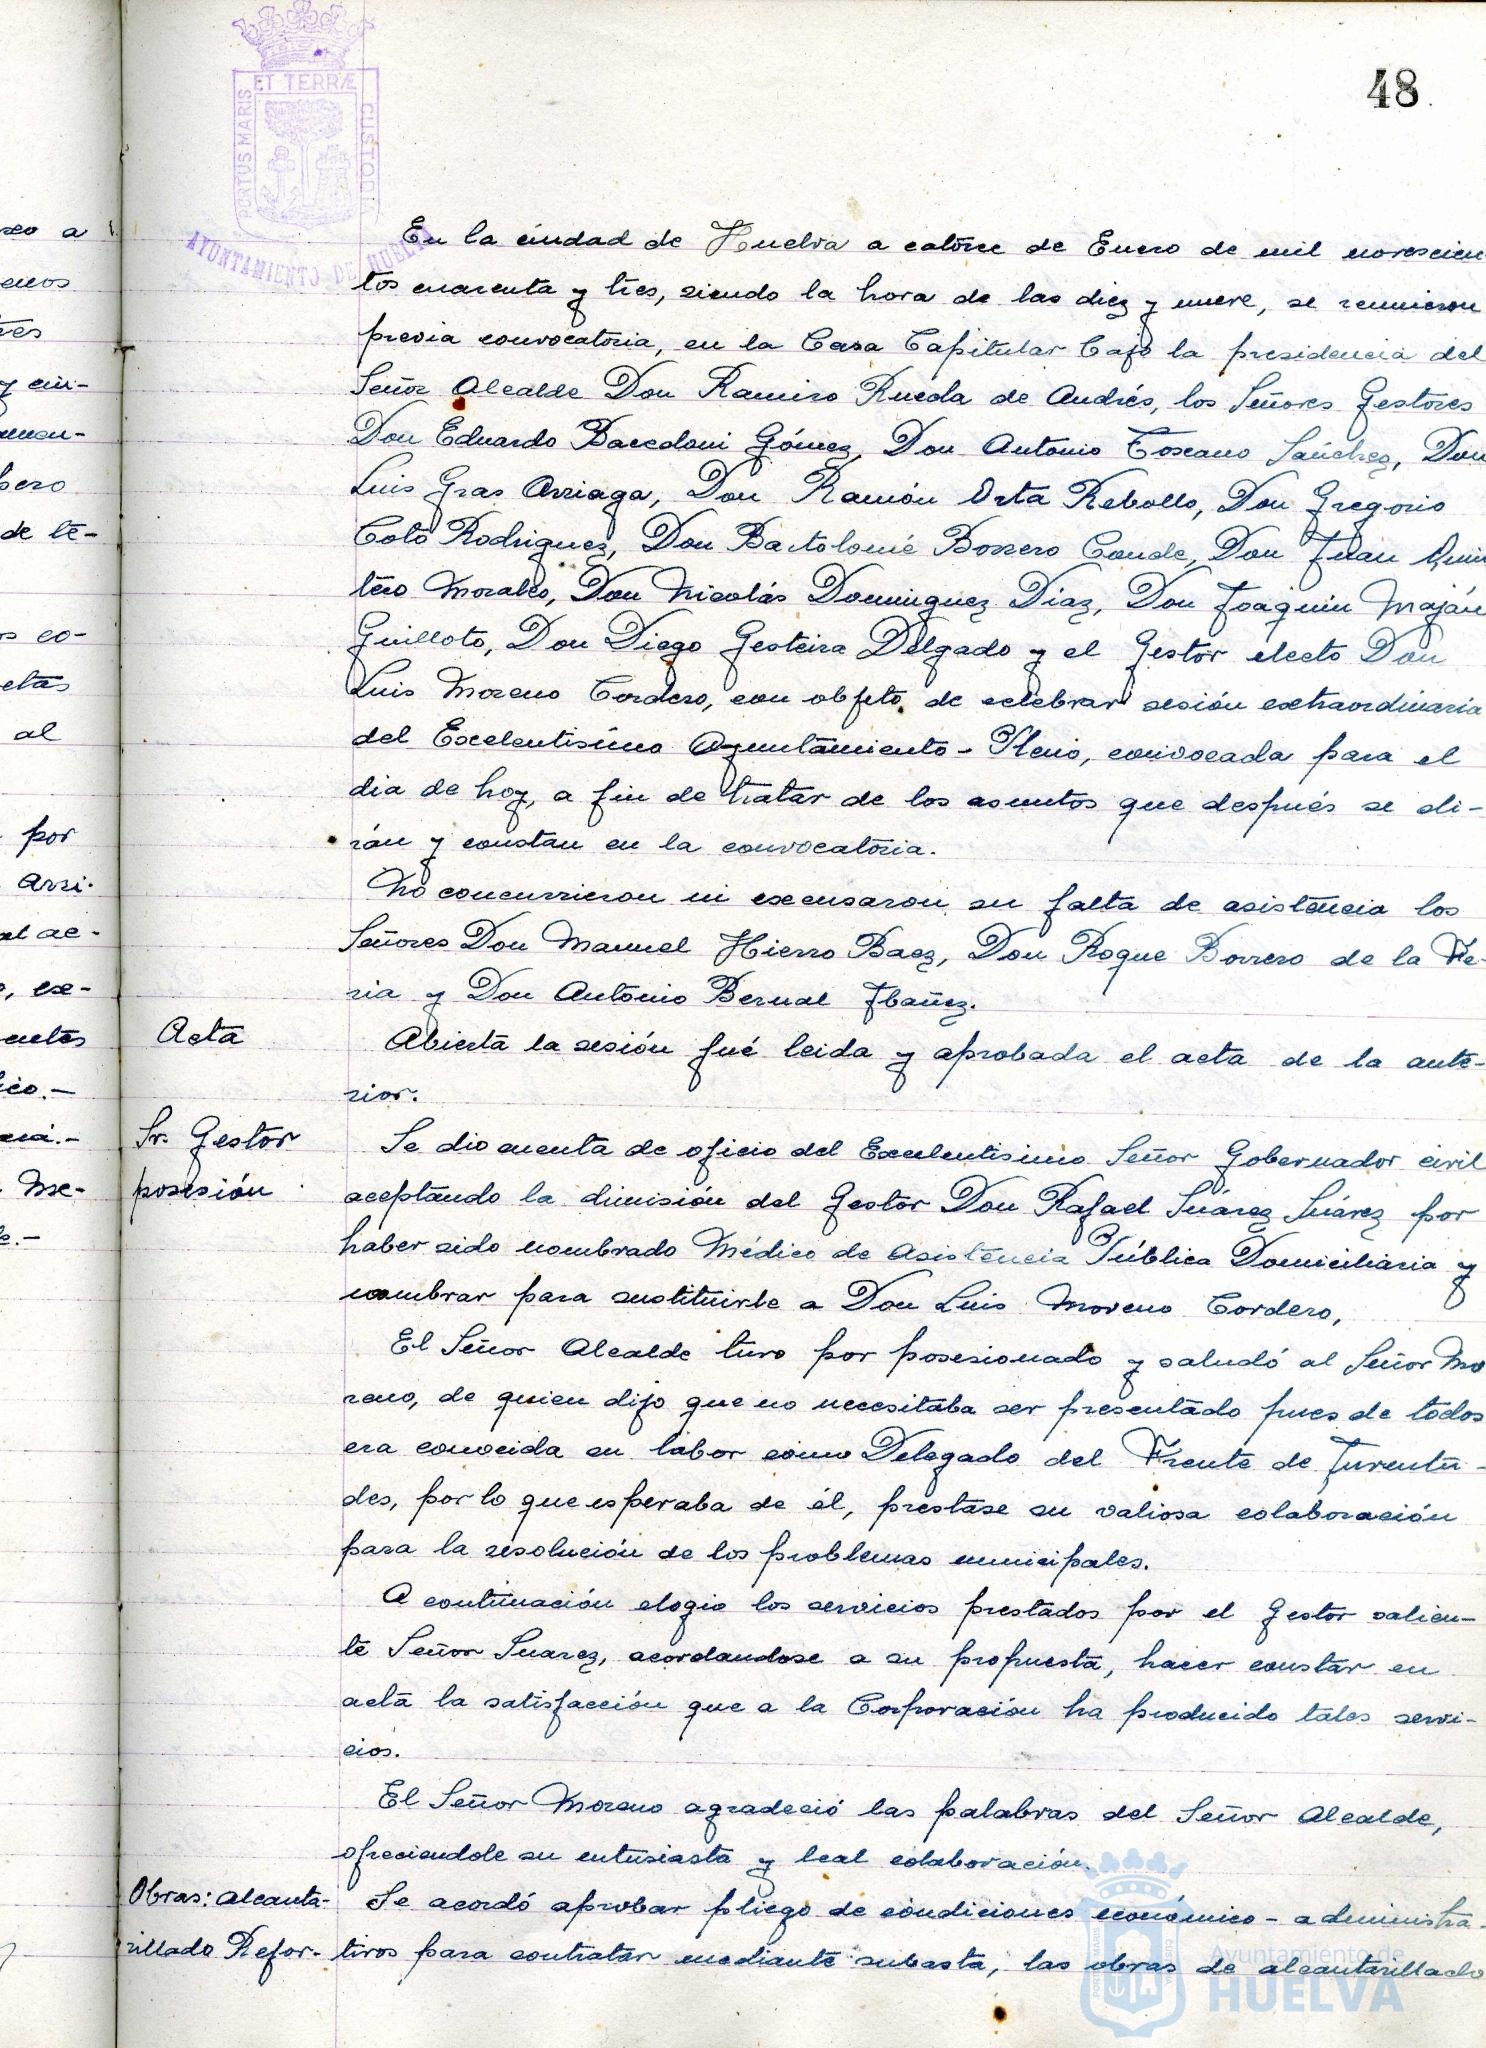 48
ET TERRÆ
PORTUS MARIS
CUSTODI
AYUNTAMIENTO DE HUELVA
En la ciudad de Huelva a catorce de Enero de mil novescien
tos cuarenta y tres, siendo la hora de las diez y nueve, se reunieron
previa convocatoria, en la Casa Capitular bajo la presidencia del
Señor Alcalde Don Ramiro Rueda de Andrés, los Señores Gestores
Don Eduardo Bacedoni Gómez, Don Antonio Toscano Sánchez, Don
Luis Gras Arriaga, Don Ramón Orta Rebollo, Don Gregorio
Coto Rodriguez, Don Bartolomé Borrero Conde, Don Juan Quin
tero Morales, Don Nicolás Dominguez Diaz, Don Joaquin Maján
Guilloto, Don Diego Gesteira Delgado y el Gestor electo Don
Luis Moreno Cordero, con objeto de celebrar sesión extraordinaria
del Excelentisimo Ayuntamiento - Pleno, convocada para el
dia de hoy, a fin de tratar de los asuntos que después se di-
rán y constan en la convocatoria.
No concurrieron ni excusaron su falta de asistencia los
Señores Don Manuel Hierro Baez, Don Roque Borrero de la Fe-
ria y Don Antonio Bernal Ibañez.
Acta
Abierta la sesión fué leida y aprobada el acta de la ante-
rior.
Sr. Gestor
posesión
Se dio cuenta de oficio del Excelentisimo Señor Gobernador civil
aceptando la dimisión del Gestor Don Rafael Suárez Suárez por
haber sido nombrado Médico de Asistencia Pública Domiciliaria y
nombrar para sustituirle a Don Luis Moreno Cordero,
El Señor Alcalde tuvo por posesionado y saludó al Señor Mo
reno, de quien dijo que no necesitaba ser presentado pues de todos
era conocida su labor como Delegado del Frente de Juventu-
des, por lo que esperaba de él, prestase su valiosa colaboración
para la resolución de los problemas municipales.
A continuación elogio los servicios prestados por el Gestor salien-
te Señor Suarez, acordandose a su propuesta, hacer constar en
acta la satisfacción que a la Corporación ha producido tales servi-
cios.
El Señor Moreno agradeció las palabras del Señor Alcalde,
ofreciendole su entusiasta y leal colaboración.
Obras: alcanta-
rillado Refor-
Se acordó aprobar pliego de condiciones económico - administra-
tivos para contratar mediante subasta, las obras de alcantarillado
Ayuntamiento de
HUELVA